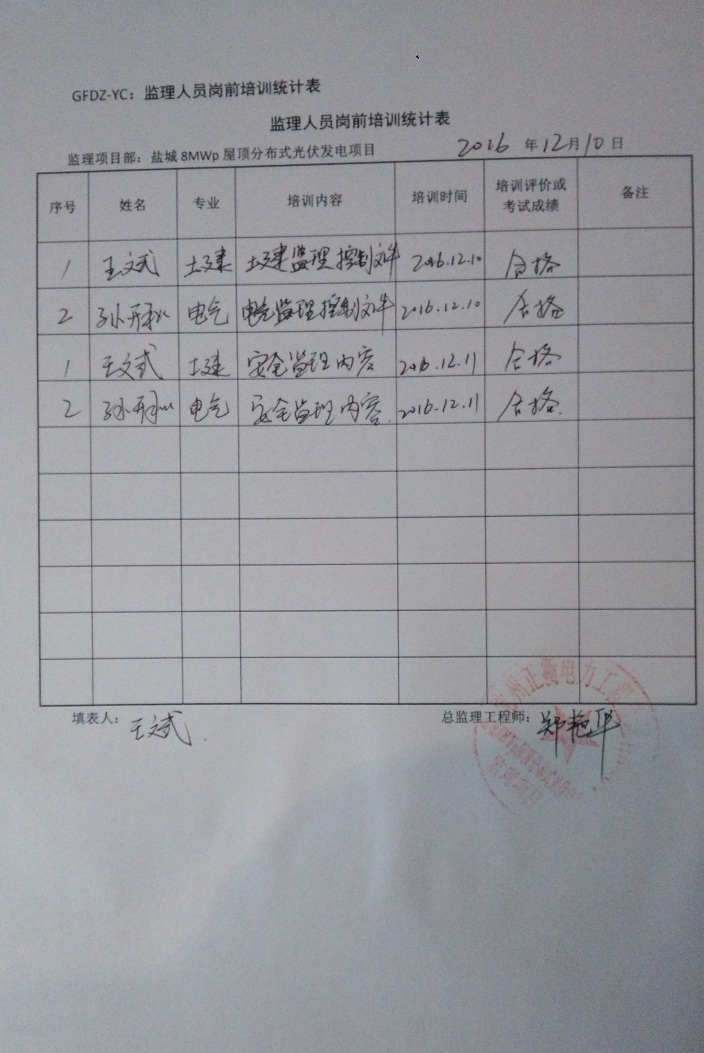 GFDZ-YC：监理人员岗前培训统计表
监理人员岗前培训统计表
监理项目部：盐城 8MWp 屋顶分布式光伏发电项目 2016 年 12 月 10 日
序号 姓名 专业 培训内容 培训时间 培训评价或考试成绩 备注
1 王文斌 土建 土建监理控制文件 2016.12.10 合格
2 孙 电气 电气监理控制文件 2016.12.10 合格
1 王文斌 土建 安全监理内容 2016.12.11 合格
2 孙 电气 安全监理内容. 2016.12.11 合格.
填表人：王文斌. 总监理工程师：郑艳华
州正衡电力工程